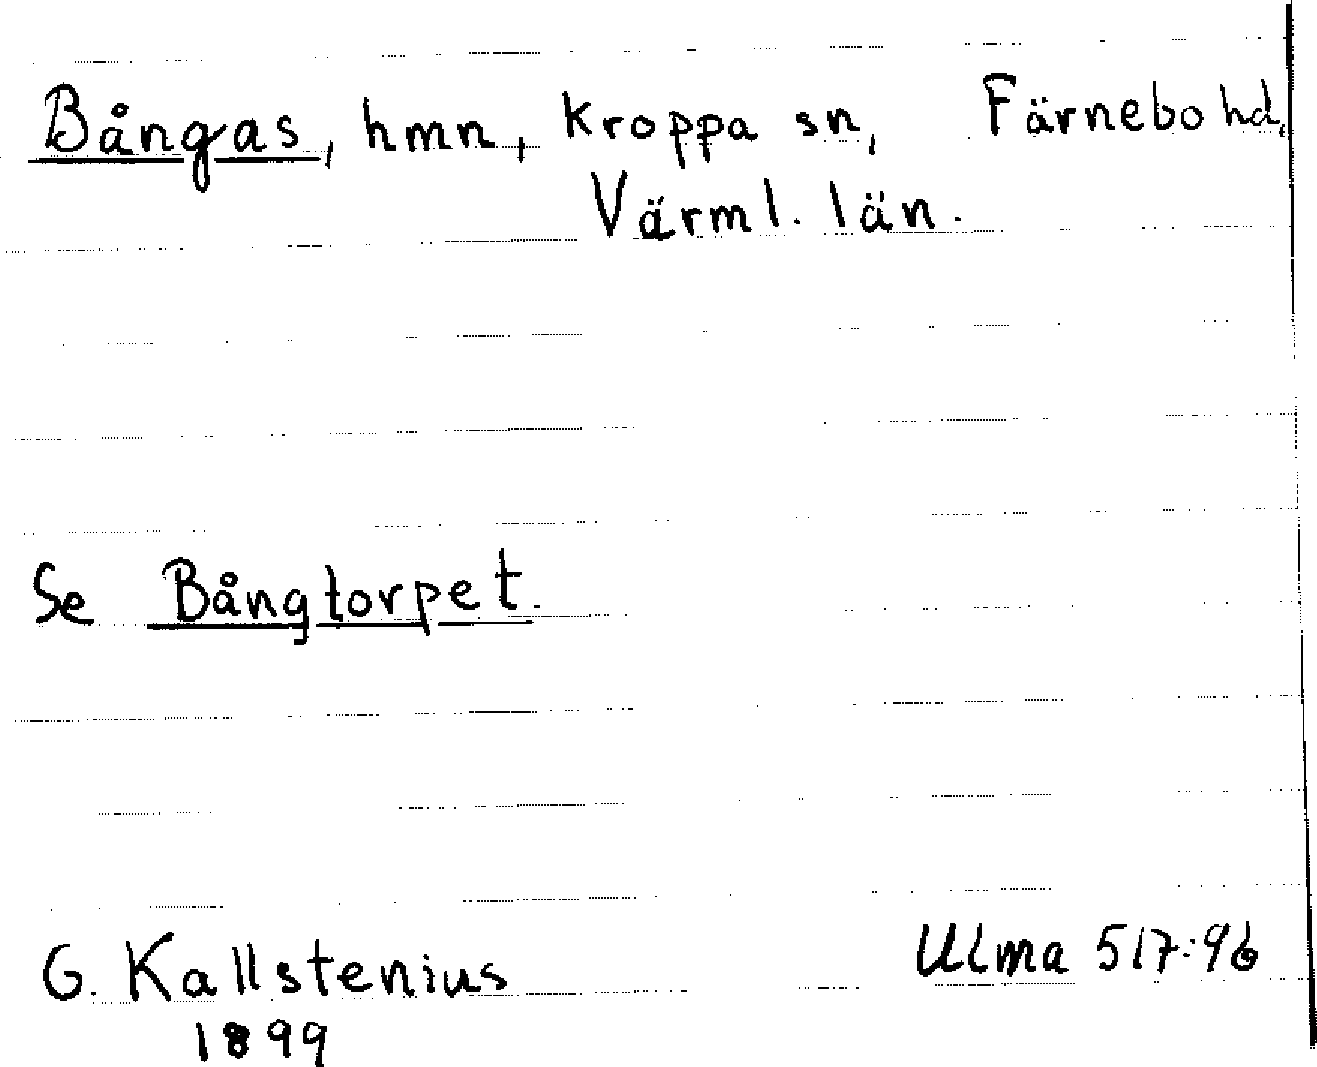 Bångas, hmn, Kroppa sn, Färnebo hd,
Värml. län.
Se Bångtorpet.
G. Kallstenius Ulma 517:96
1899